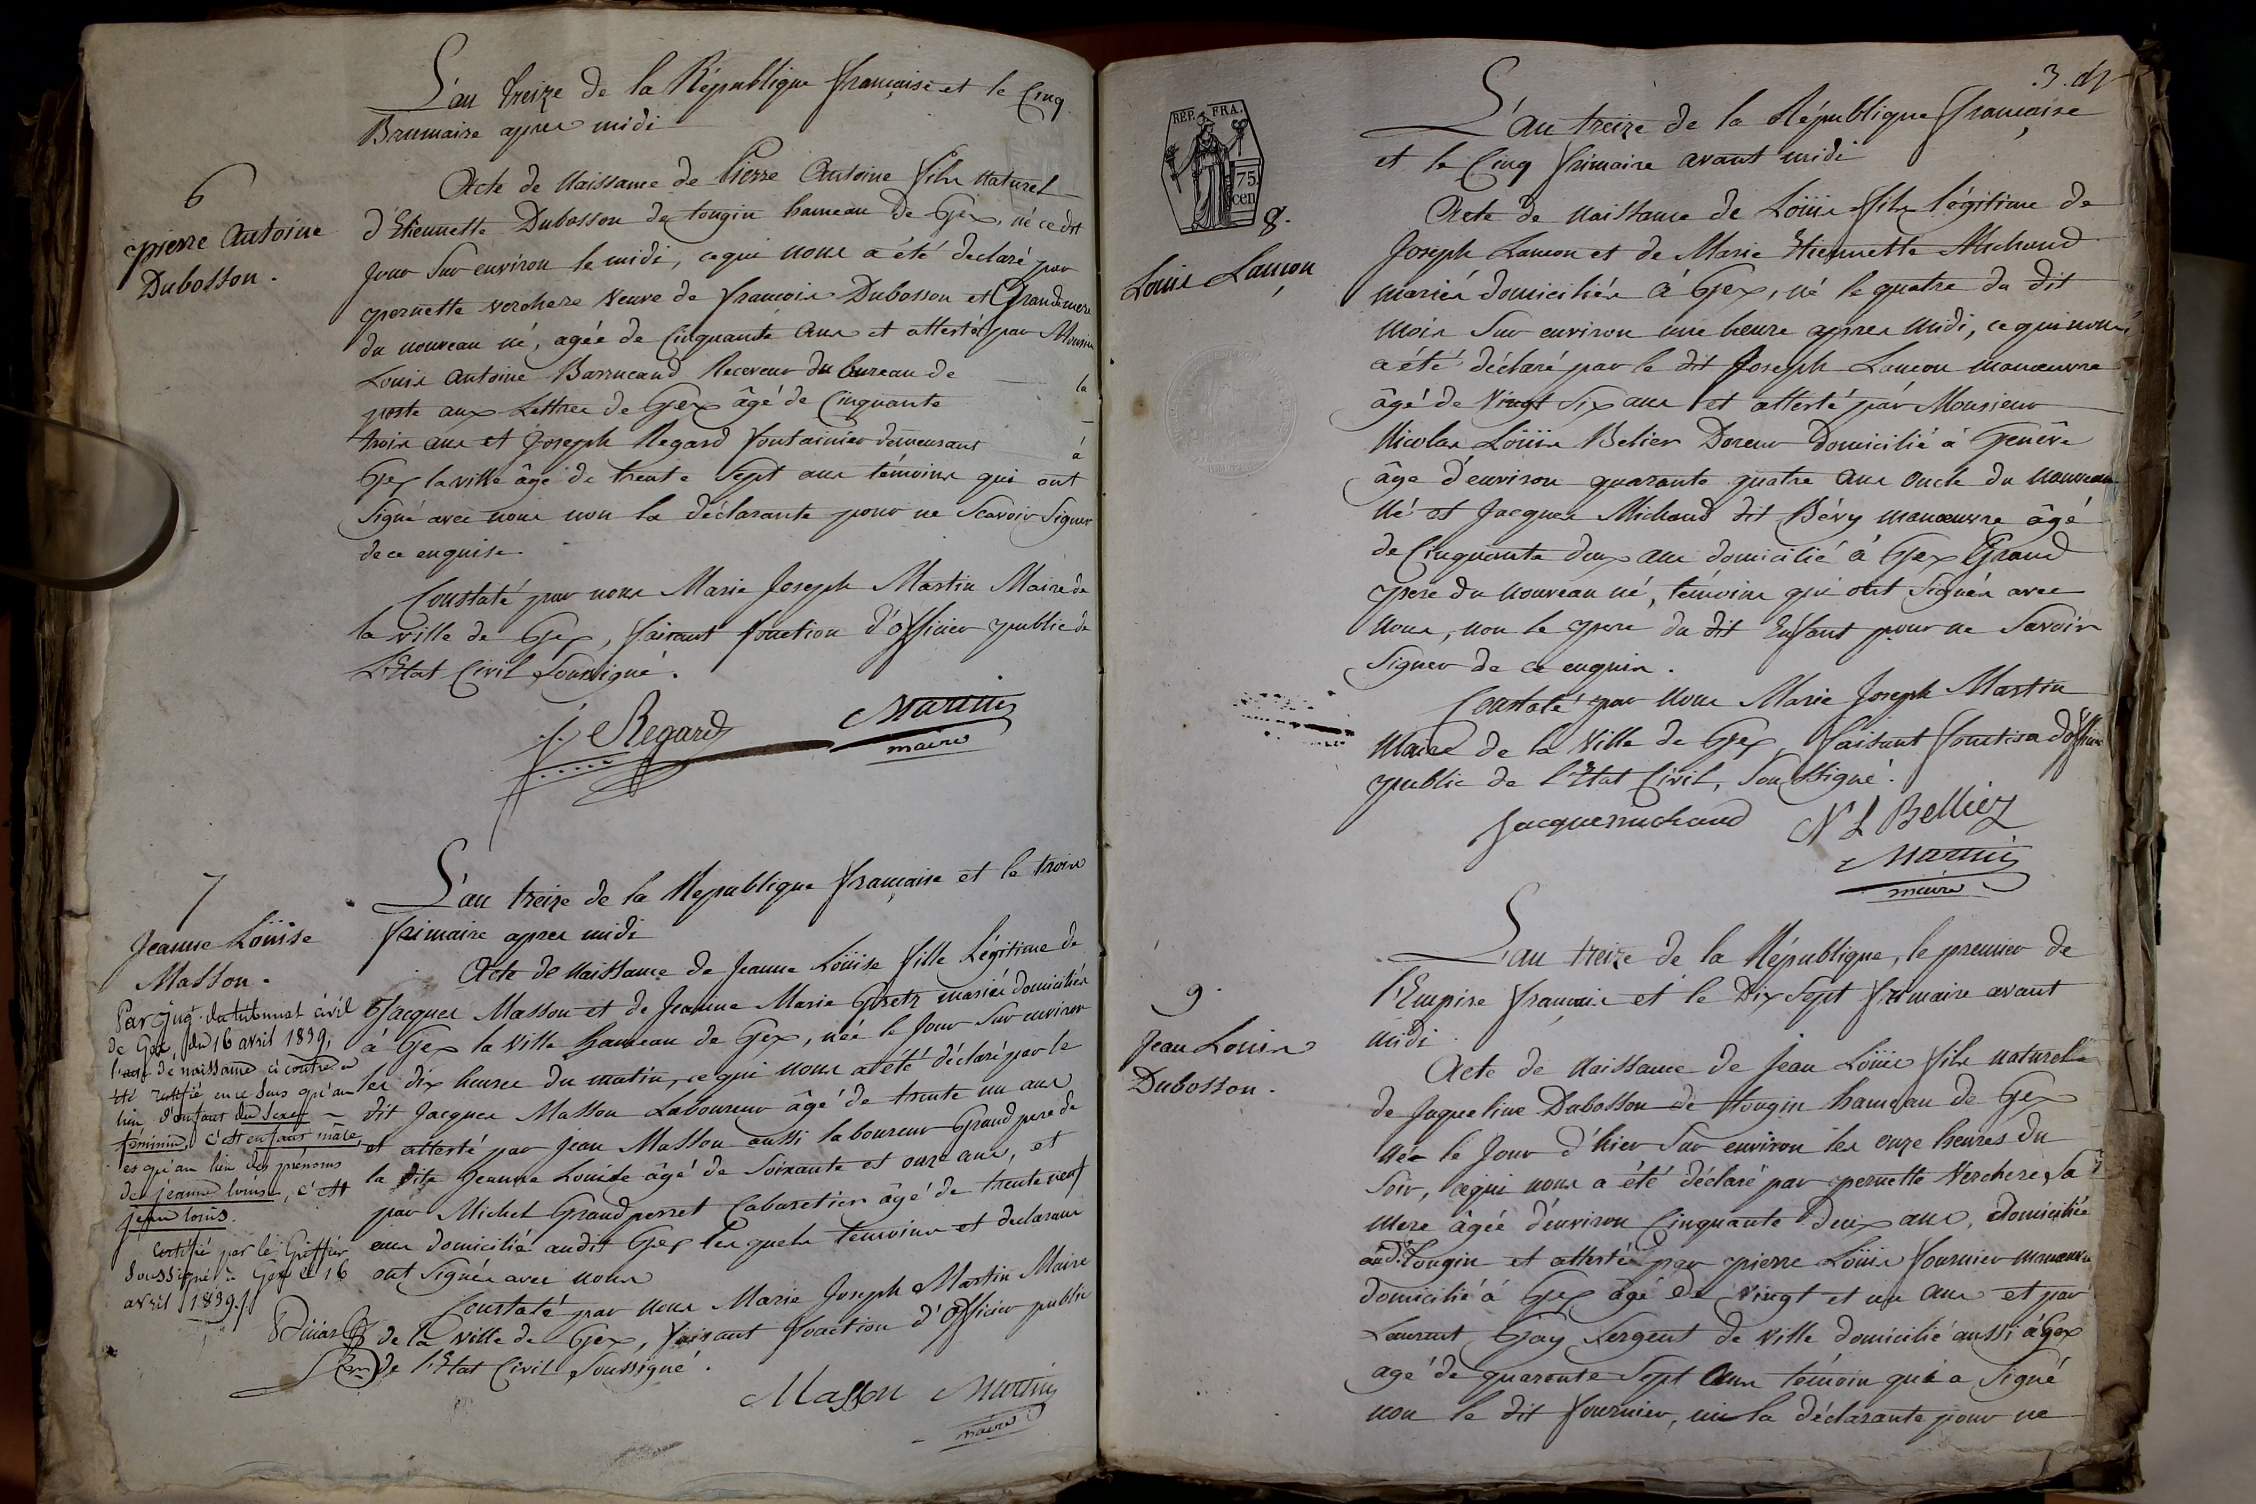 L'an treize de la République française et le Cinq
Brumaire apres midi
6
pierre Antoine
Dubosson.
Acte de Naissance de Pierre Antoine fils Naturel
d'Etiennette Dubosson de tougin hameau de Gex, né ce dit
Jour Sur environ le midi, ce qui nous a été declaré par
pernette verchere Veuve de francois Dubosson et Grandmere
du nouveau né, agée de Cinquante ans et attesté par Monsieur
Louis Antoine Barrucand Receveur du bureau de la
poste aux Lettres de Gex âgé de Cinquante
trois ans et Joseph Regard fontainier demeurant à
Gex la ville âgé de trente Sept ans témoins qui ont
Signé avec nous non la déclarante pour ne Scavoir Signer
de ce enquise.
Constaté par nous Marie Joseph Martin Maire de
la ville de Gex, faisant fonction d'officier public de
L'Etat Civil Soussigné.
J. Regard
Martin
maire
7
Jeanne Loüise
Masson.
Par jugt. du tribunal civil
de Gex, du 16 avril 1839,
l'acte de naissance ci contre a
été rectifié en ce sens qu'au
lieu d'enfant du Sexe
féminin, c'est enfant mâle,
et qu'au lieu des prénoms
de jeanne louise, c'est
jean louis.
Certifié par le Greffier
Soussigné à Gex ce 16
avril 1839./.
L'an treize de la République française et le trois
frimaire apres midi
Acte de Naissance de Jeanne Loüise fille Légitime de
Jacques Masson et de Jeanne Marie Gretz mariés domiciliés
à Gex la ville hameau de Gex, née le Jour Sur environ
les dix heures du matin, ce qui nous a été déclaré par le
dit Jacques Masson Laboureur âgé de trente un ans
et attesté par Jean Masson aussi laboureur Grand pere de
la dite Jeanne Louise âgé de Soixante et onze ans, et
par Michel Grandperret Cabaretier âgé de trente neuf
ans domicilié audit Gex les quels temoins et declarant
ont Signés avec nous
Constaté par nous Marie Joseph Martin Maire
de la ville de Gex, faisant fonction d'officier public
de l'Etat Civil Soussigné.
Masson
Martin
maire
3.
REP. FRA.
75
cen
8.
Louis Lançon
L'an treize de la République française
et le Cinq frimaire avant midi
Acte de naissance de Loüis fils légitime de
Joseph Lancon et de Marie Etiennette Michaud
mariés domiciliés à Gex, né le quatre du dit
mois Sur environ une heure apres midi, ce qui nous
a été déclaré par le dit Joseph Lancon manœuvre
âgé de Vingt Six ans et attesté par Monsieur
Nicolas Loüis Belier Doreur domicilié à Genêve
âge d'environ quarante quatre ans oncle du nouveau
né et Jacques Michaud dit Bévy manœuvre âgé
de Cinquante deux ans domicilié à Gex Grand
pere du nouveau né, témoins qui ont Signés avec
nous, non le pere du dit Enfant pour ne Savoir
Signer de ce enquis.
Constaté par nous Marie Joseph Martin
Maire de la Ville de Gex, faisant fonction d'officier
public de l'Etat Civil, Soussigné.
Jacque michaud
N L Bellier
Martin
maire
9.
Jean Louis
Dubosson.
L'an treize de la République, le premier de
l'Empire français et le Dix Sept frimaire avant
midi
Acte de Naissance de Jean Loüis fils naturel
de Jaqueline Dubosson de tougin hameau de Gex
née le Jour d'hier Sur environ les onze heures du
Soir, ce qui nous a été déclaré par pernette Verchere, Sa
mere âgée d'environ Cinquante deux ans, domiciliée
aud. tougin et attesté par pierre Loüis fournier manœuvre
domicilié à Gex âgé de Vingt et un ans et par
Laurent Gay Sergent de ville domicilié aussi à Gex
agé de quarente Sept ans témoin qui a Signé
non le dit fournier, ni la déclarante pour ne